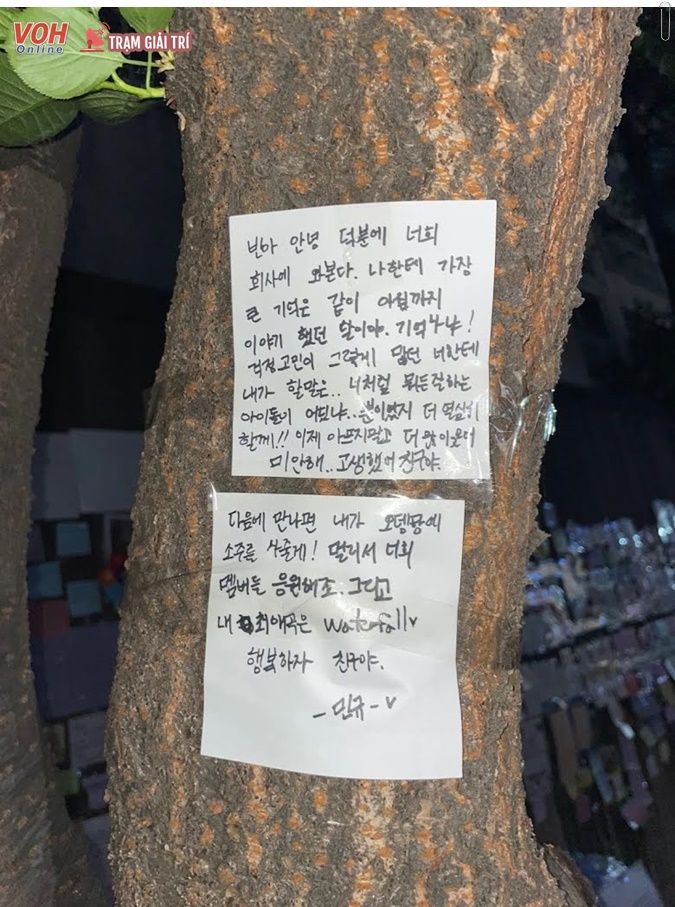 VOH
Online
TRẠM GIẢI TRÍ
빈아 안녕 덕분에 너희
회사에 와본다. 나한테 가장
큰 기억은 같이 아침까지
이야기 했던 날이야. 기억나냐!
걱정고민이 그렇게 많던 너한테
내가 할말은.. 너처럼 뭐든잘하는
아이돌이 어딨냐.. 뿐이였지 더 열심히
할께!! 이제 아프지말고 더 많이웃어
미안해.. 고생했어 친구야.
다음에 만나면 내가 오뎅탕에
소주를 사줄게! 멀리서 너희
멤버들 응원해조. 그리고
내 최애곡은 waterfall
행복하자 친구야.
- 민규 -